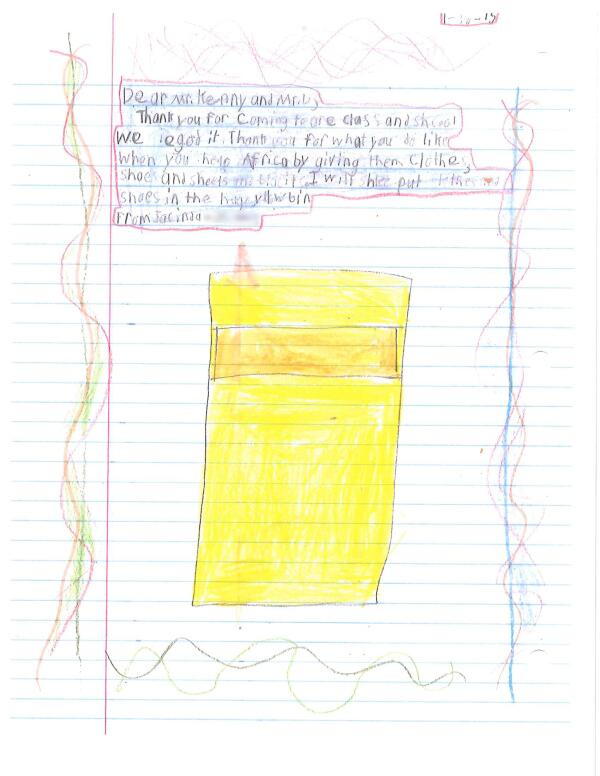 Dear Mr. Kenny and Mr. U,
Thank you for Coming to are class and shcool
we legod it. Thank you for what you do like
when you help Africa by giving them Clothes,
shoes and sheets I will put
shoes in the huge yllw bin
From Jacinda